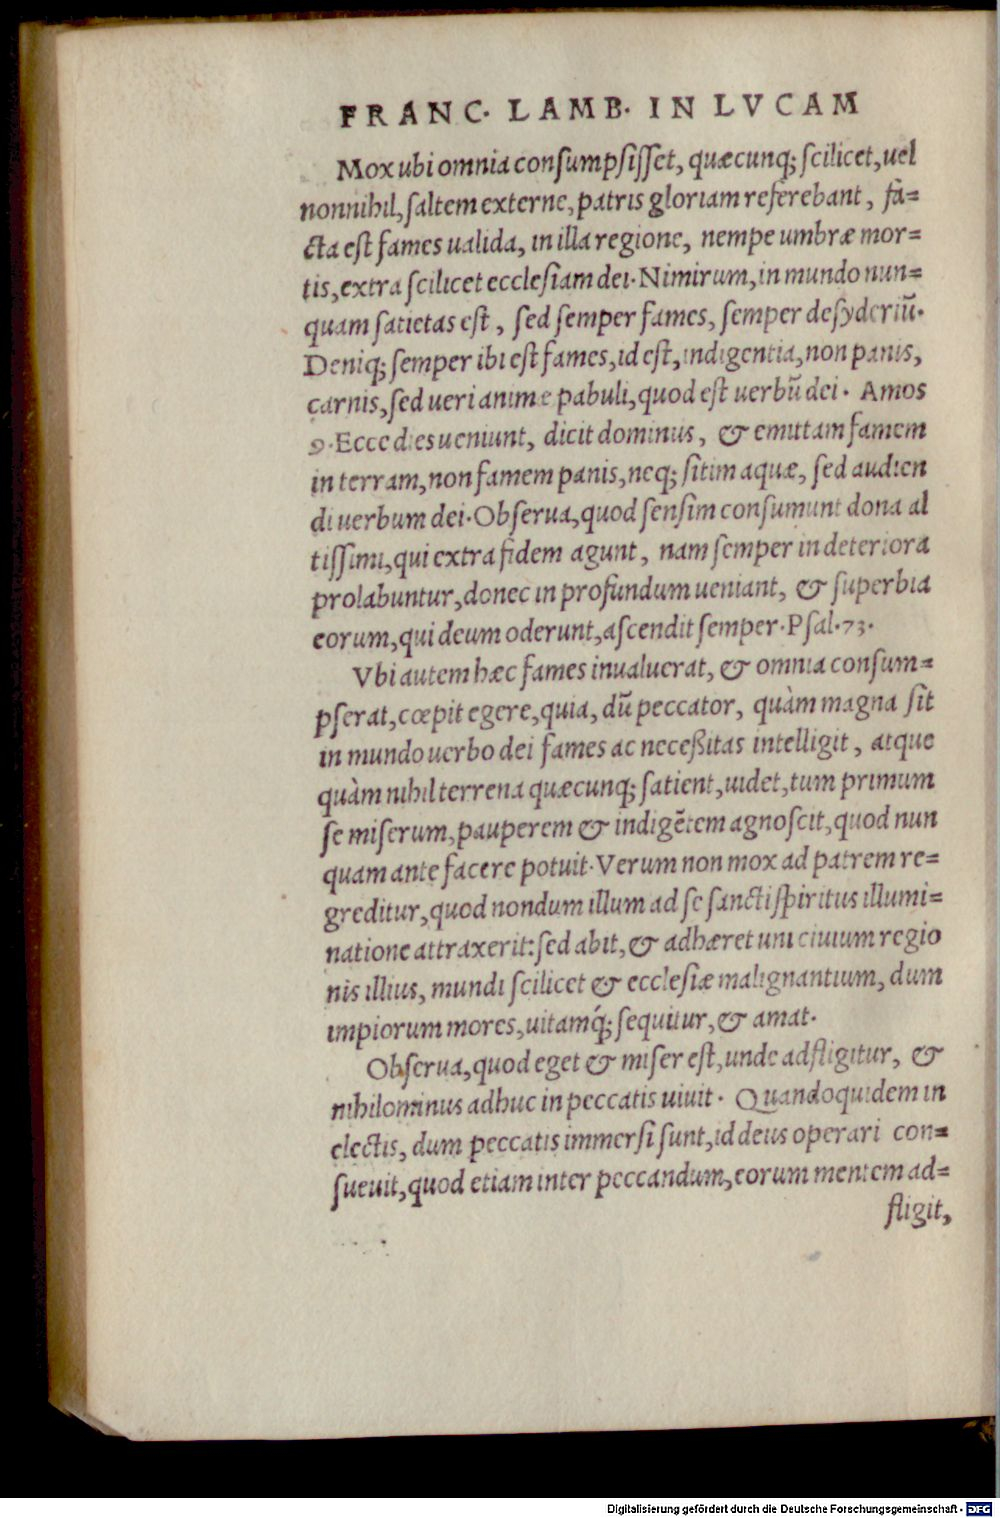 FRANC. LAMB. IN LVCAM
Mox ubi omnia consumpsisset, quæcunq; scilicet, uel
nonnihil, saltem externe, patris gloriam referebant, fa=
cta est fames ualida, in illa regione, nempe umbræ mor=
tis, extra scilicet ecclesiam dei. Nimirum, in mundo nun=
quam satietas est, sed semper fames, semper desyderiũ.
Deniq; semper ibi est fames, id est, indigentia, non panis,
carnis, sed ueri animæ pabuli, quod est uerbũ dei. Amos
9. Ecce dies ueniunt, dicit dominus, & emittam famem
in terram, non famem panis, neq; sitim aquæ, sed audien
di uerbum dei. Obserua, quod sensim consumunt dona al
tissimi, qui extra fidem agunt, nam semper in deteriora
prolabuntur, donec in profundum ueniant, & superbia
eorum, qui deum oderunt, ascendit semper. Psal. 73.
Vbi autem hæc fames inualuerat, & omnia consum=
pserat, cœpit egere, quia, dũ peccator, quàm magna sit
in mundo uerbo dei fames ac necessitas intelligit, atque
quàm nihil terrena quæcunq; satient, uidet, tum primum
se miserum, pauperem & indigẽtem agnoscit, quod nun
quam ante facere potuit. Verum non mox ad patrem re=
greditur, quod nondum illum ad se sancti spiritus illumi=
natione attraxerit: sed abit, & adhæret uni ciuium regio
nis illius, mundi scilicet & ecclesiæ malignantium, dum
impiorum mores, uitamq́; sequitur, & amat.
Obserua, quod eget & miser est, unde adfligitur, &
nihilominus adhuc in peccatis uiuit. Quandoquidem in
electis, dum peccatis immersi sunt, id deus operari con=
sueuit, quod etiam inter peccandum, eorum mentem ad=
fligit,
Digitalisierung gefördert durch die Deutsche Forschungsgemeinschaft - DFG